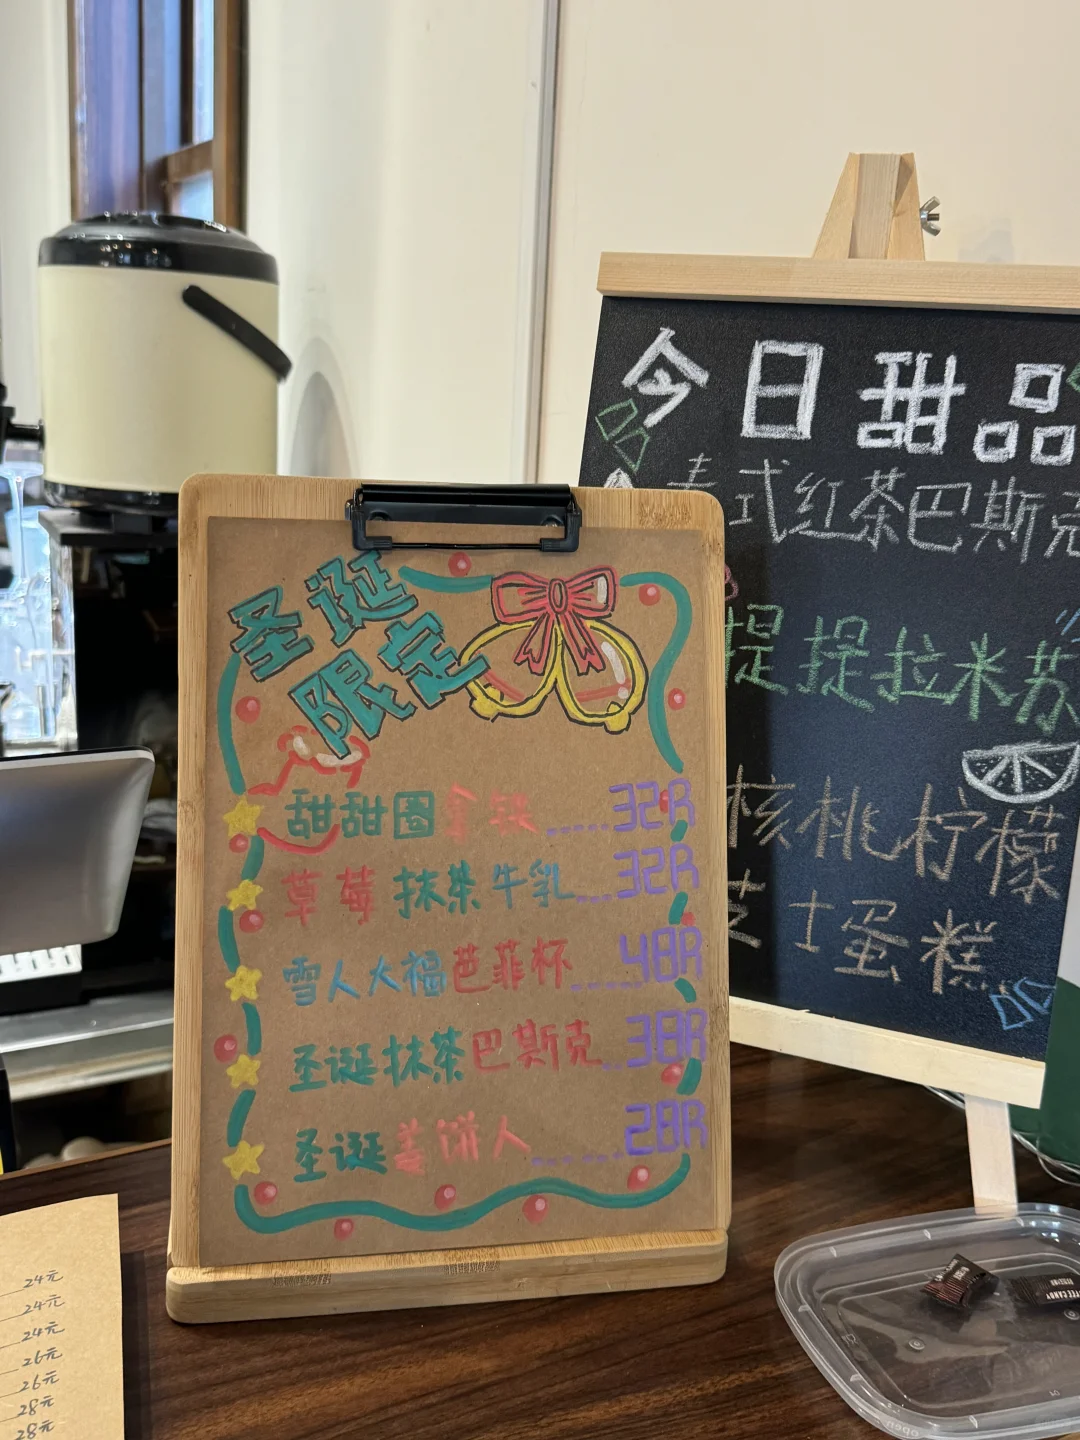 圣诞
限定
甜甜圈拿铁......32R
草莓抹茶牛乳....32R
雪人大福芭菲杯......48R
圣诞抹茶巴斯克..38R
圣诞姜饼人......28R
今日甜品
泰式红茶巴斯克
提提拉米苏
核桃柠檬
芝士蛋糕
24元
24元
24元
26元
26元
28元
28元